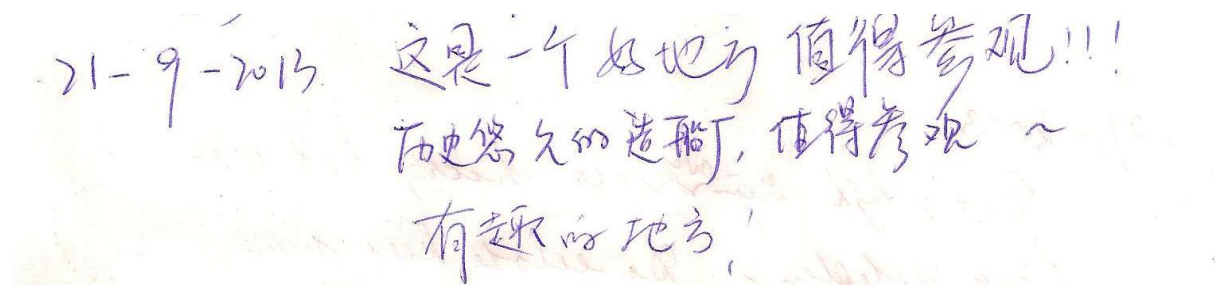 21-9-2013. 这是一个好地方 值得参观!!!
历史悠久的造船厂, 值得参观 ~
有趣的地方!